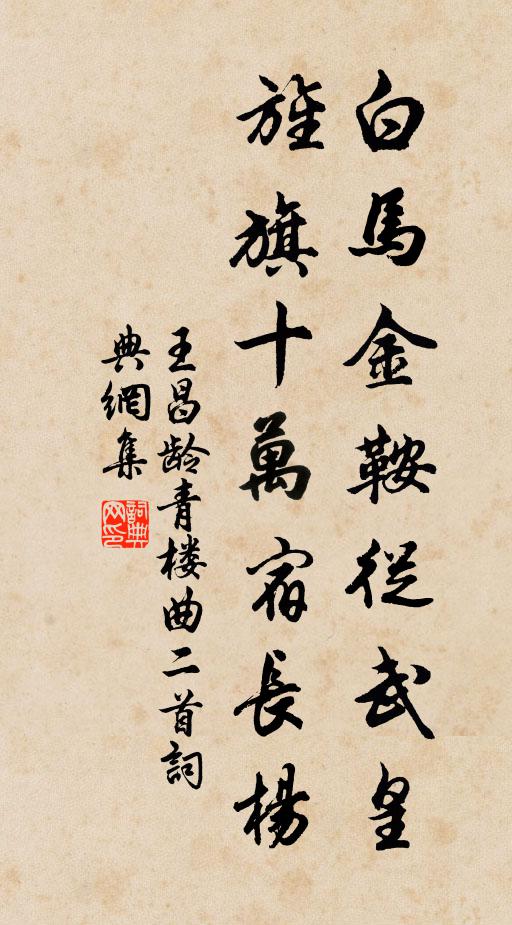 白馬金鞍從武皇
旌旗十萬宿長楊
王昌龄青楼曲二首詞
典網集
詞典
网印